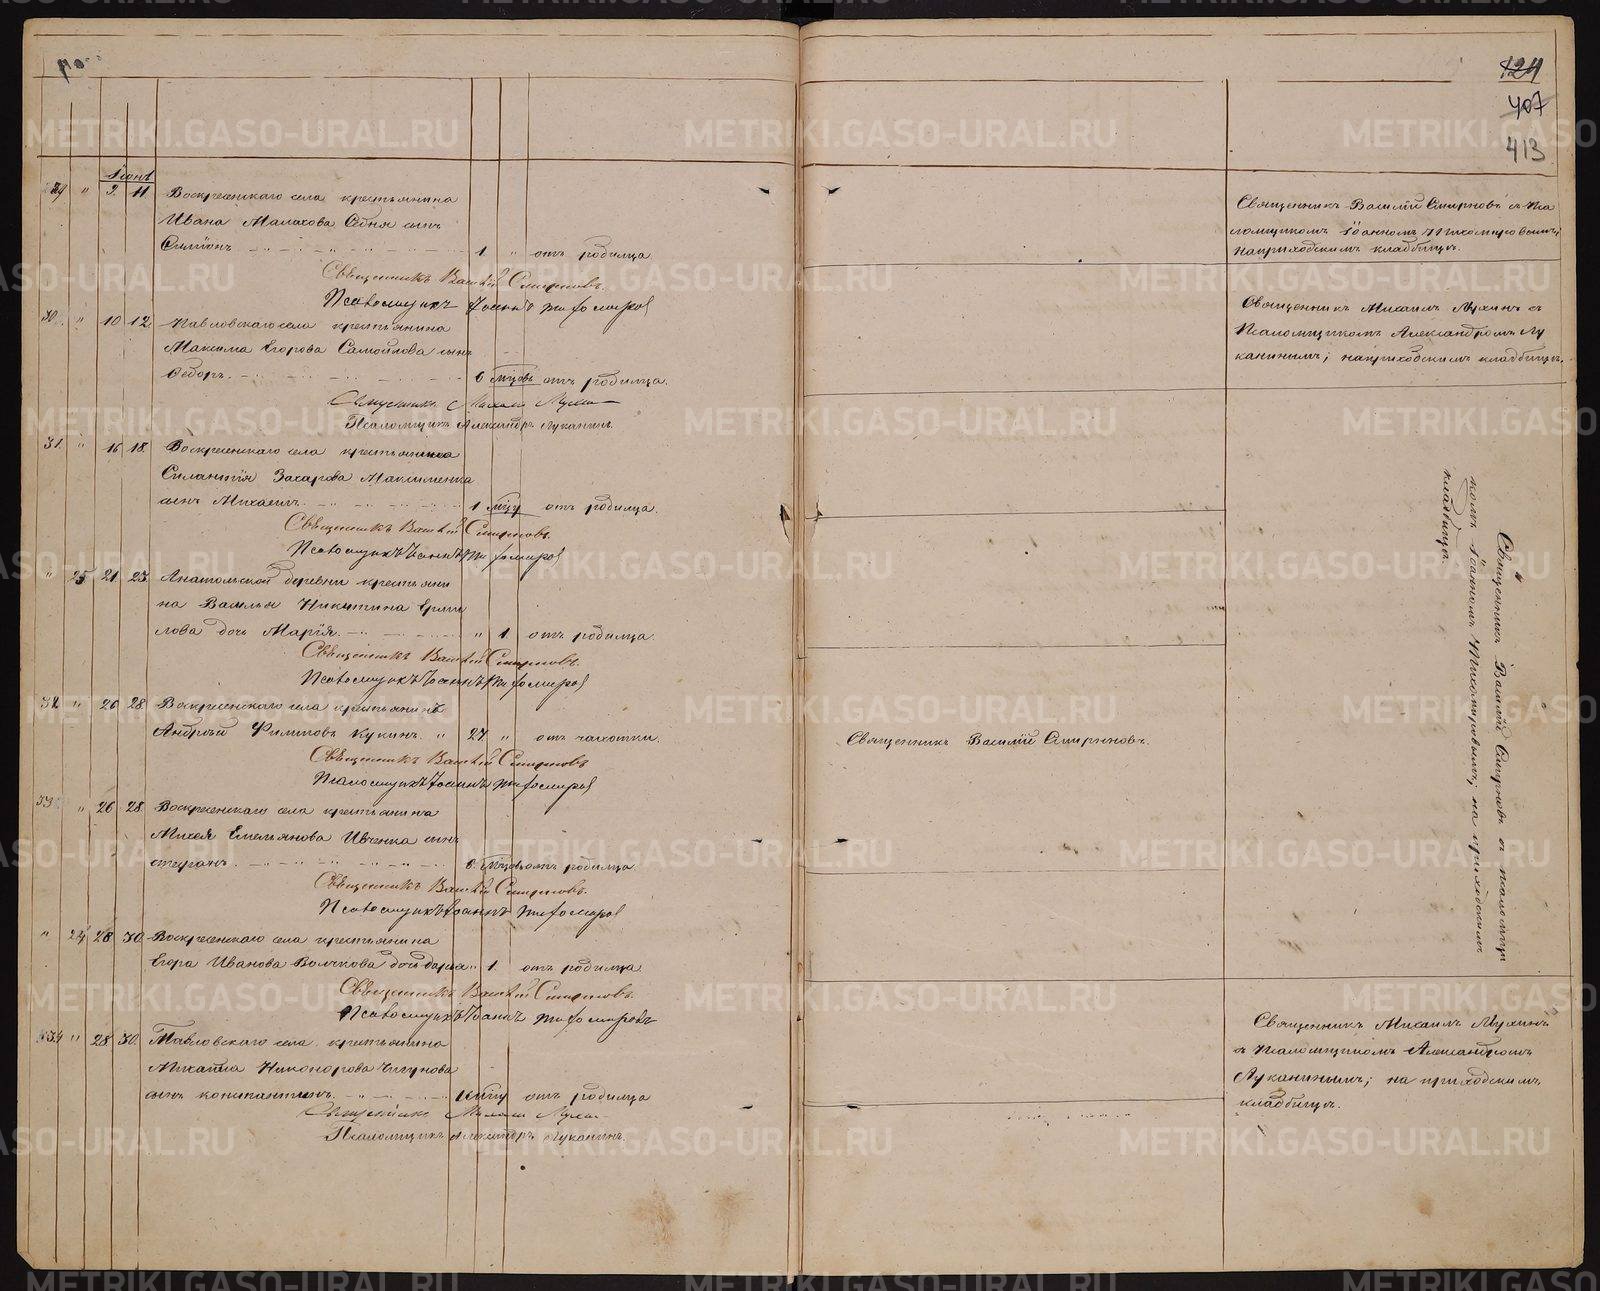 124
407
413
Іюнь
29 " 9. 11. Воскресенскаго села крестьянина
Ивана Малахова сынъ
Симіонъ 1 " отъ родимца
Священникъ Василій Смирновъ.
Псаломщикъ Іоаннъ Тихомировъ
30. " 10 12. Павловскаго села крестьянина
Максима Егорова Самойлова сынъ
Ѳедоръ. 6 мѣцовъ отъ родимца.
Священникъ Михаилъ
Псаломщикъ Александръ Луканинъ.
31. " 16 18. Воскресенскаго села крестьянина
Силантія Захарова Максименка
сынъ Михаилъ. 1 мѣцу отъ родимца.
Священникъ Василій Смирновъ.
Псаломщикъ Іоаннъ Тихомировъ
" 23. 21. 23. Анатольской деревни крестьяни
на Василья Никитина Ерми
лова дочь Марія. " 1. отъ родимца.
Священникъ Василій Смирновъ.
Псаломщикъ Іоаннъ Тихомировъ
32. " 26 28. Воскресенскаго села крестьянинъ
Андрей Филиповъ Кукинъ. " 27. " отъ чахотки.
Священникъ Василій Смирновъ
Псаломщикъ Іоаннъ Тихомировъ
33. " 26 28. Воскресенскаго села крестьянина
Михея Емельянова Ивченка сынъ
6 мѣцовъ отъ родимца.
Священникъ Василій Смирновъ.
Псаломщикъ Іоаннъ Тихомировъ
" 24. 28. 30. Воскресенскаго села крестьянина
Егора Иванова Волчкова дочь Дарья " 1. отъ родимца
Священникъ Василій Смирновъ.
Псаломщикъ Іоаннъ Тихомировъ
34. " 28. 30. Павловскаго села крестьянина
Михаила Никонорова Чигунова
сынъ Константинъ. отъ родимца
Священникъ Михаилъ
Псаломщикъ Александръ Луканинъ.
Священникъ Василій Смирновъ.
Священникъ Василій Смирновъ съ Пса
ломщикомъ Іоанномъ Тихомировымъ;
на приходскомъ кладбищѣ.
Священникъ Михаилъ Мухинъ съ
Псаломщикомъ Александромъ Лу
канинымъ; на приходскомъ кладбищѣ.
Священникъ Василій Смирновъ съ псаломщи
комъ Іоанномъ Тихомировымъ; на приходскомъ
кладбищѣ.
Священникъ Михаилъ Мухинъ
съ Псаломщикомъ Александромъ
Луканинымъ; на приходскомъ
кладбищѣ.
METRIKI.GASO-URAL.RU